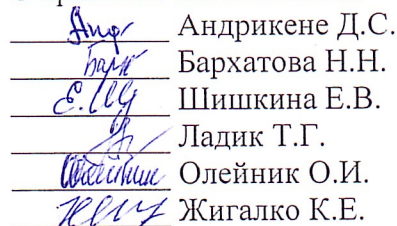 Андрикене Д.С.
Бархатова Н.Н.
Е.Ш Шишкина Е.В.
Ладик Т.Г.
Олейник Олейник О.И.
Жигалко К.Е.